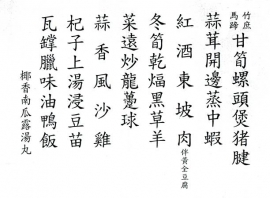 竹庶馬蹄甘筍螺頭煲猪腱
蒜茸開邊蒸中蝦
紅酒東坡肉伴黃金豆腐
冬筍乾煏黑草羊
菜遠炒龍躉球
蒜香風沙雞
杞子上湯浸豆苗
瓦罉臘味油鴨飯
椰香南瓜露湯丸